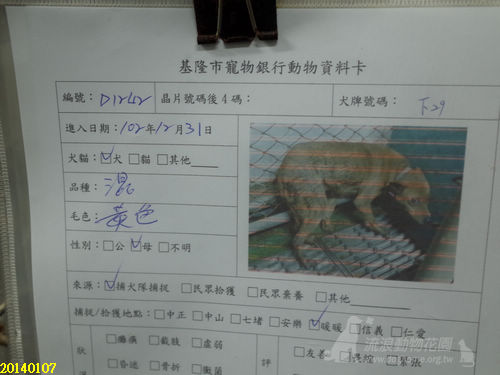 基隆市寵物銀行動物資料卡
編號: D1242 晶片號碼後4碼: 犬牌號碼: 下29
進入日期: 102年12月31日
犬貓: ☑犬 □貓 □其他
品種: 混
毛色: 黃色
性別: □公 ☑母 □不明
來源: ☑捕犬隊捕捉 □民眾拾獲 □民眾棄養 □其他
捕捉/拾獲地點: □中正 □中山 □七堵 □安樂 ☑暖暖 □信義 □仁愛
狀 □癱瘓 □截肢 □虛弱 評 □友善 □畏怯
□昏迷 □骨折 □黴菌
流浪動物花園
20140107